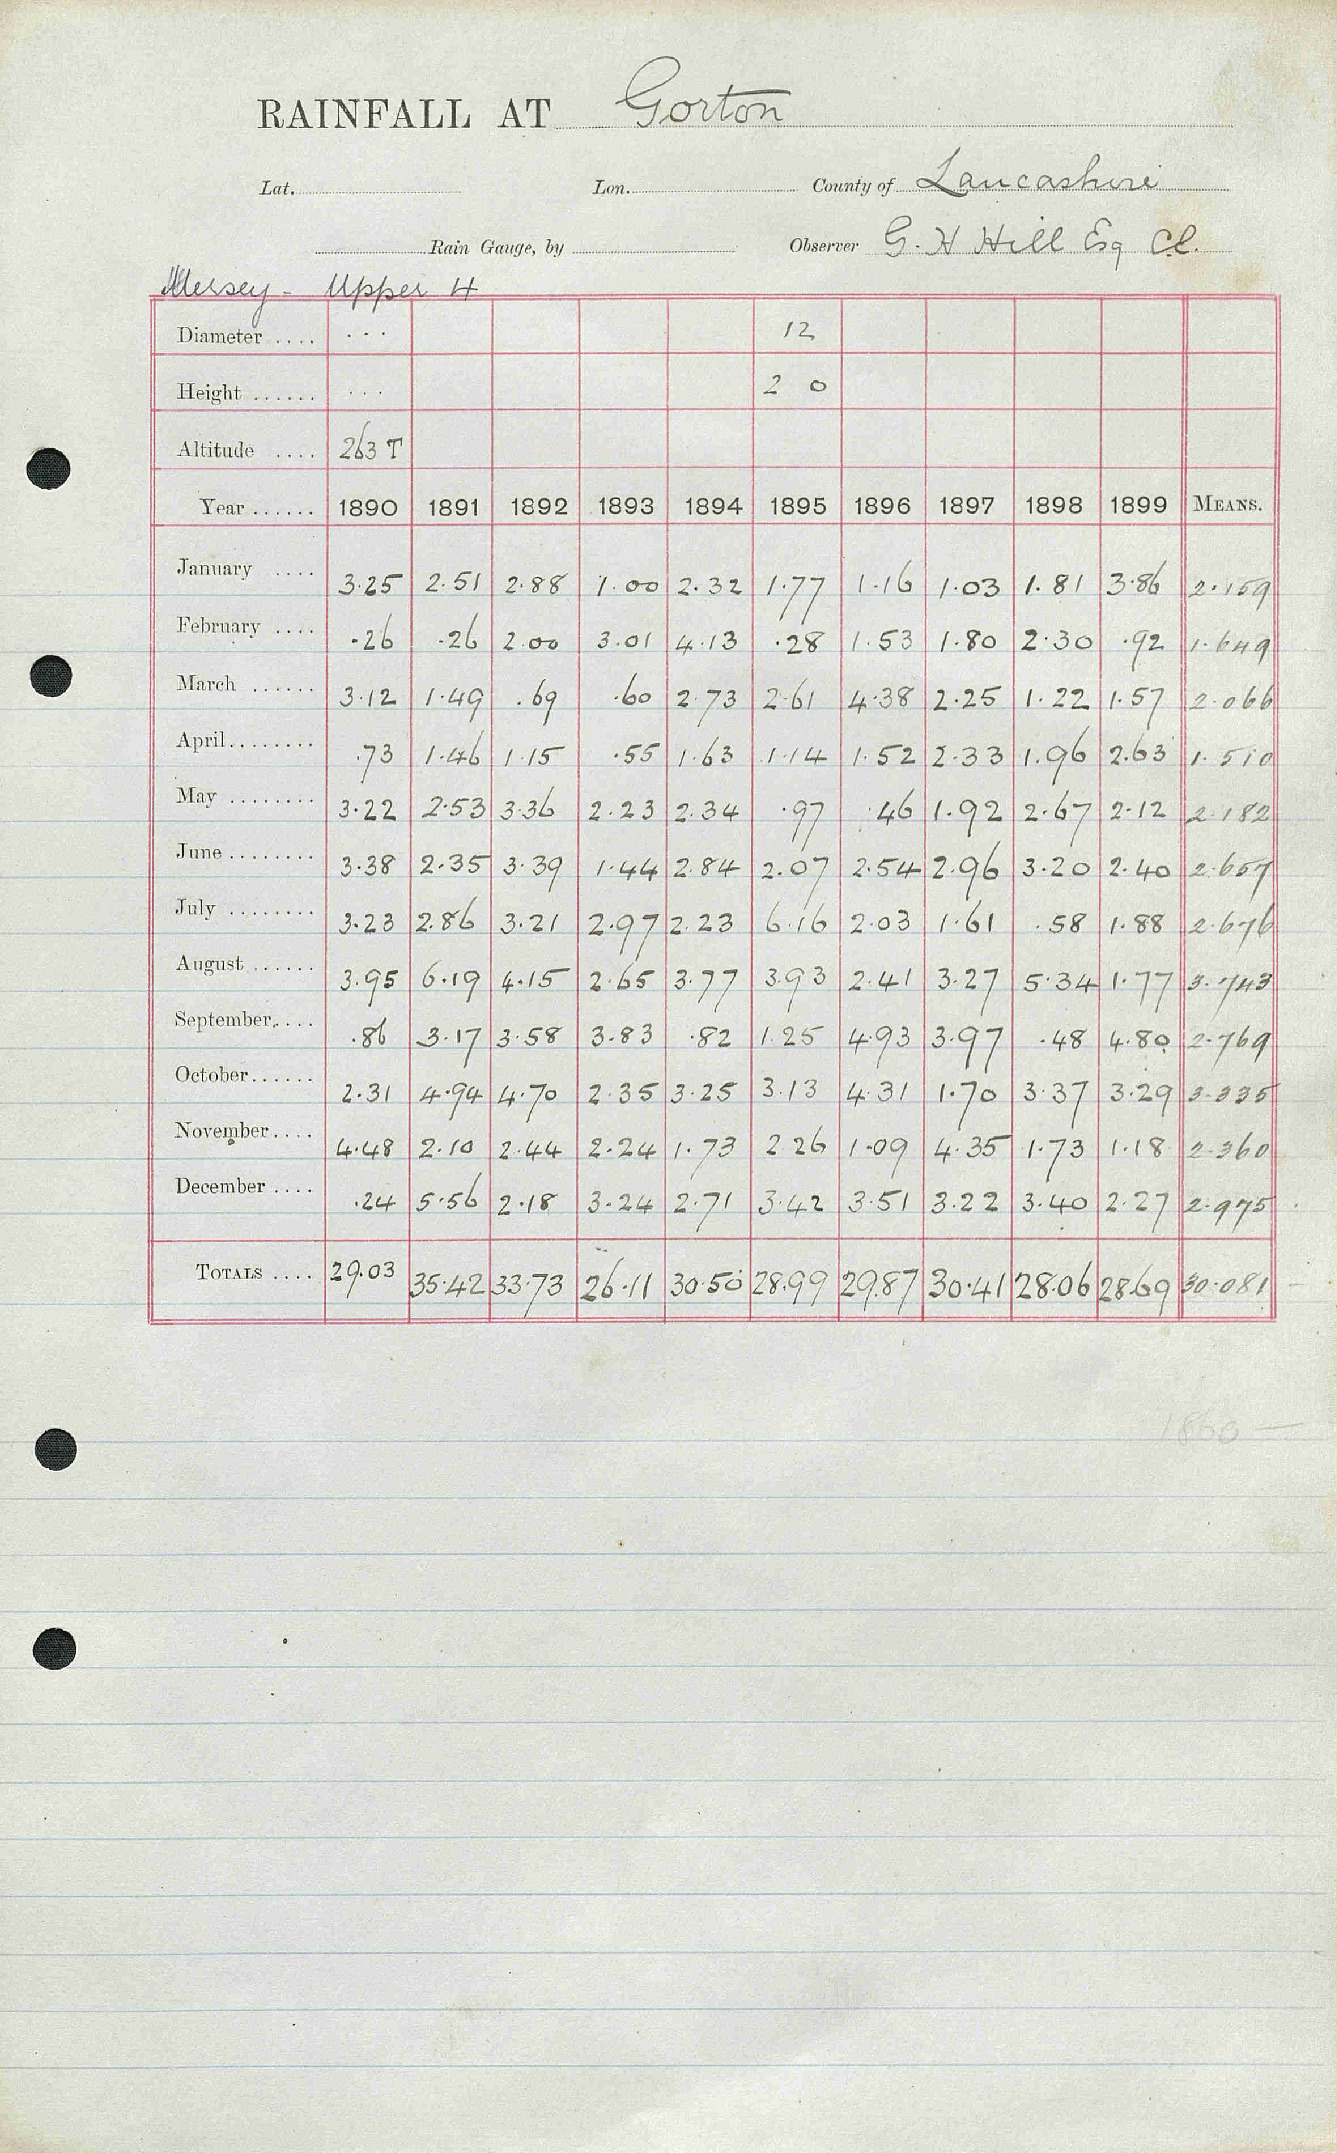 RAINFALL AT Gorton
Lat. Lon. County of Lancashire
Rain Gauge, by Observer G. H Hill Esq C.E.
Mersey - Upper 4
Diameter .... ... 12
Height ...... ... 2 0
Altitude .... 263 T
Year ...... 1890 1891 1892 1893 1894 1895 1896 1897 1898 1899 MEANS.
January .... 3.25 2.51 2.88 1.00 2.32 1.77 1.16 1.03 1.81 3.86 2.159
February .... .26 .26 2.00 3.01 4.13 .28 1.53 1.80 2.30 .92 1.649
March ...... 3.12 1.49 .69 .60 2.73 2.61 4.38 2.25 1.22 1.57 2.066
April........ .73 1.46 1.15 .55 1.63 1.14 1.52 2.33 1.96 2.63 1.510
May ........ 3.22 2.53 3.36 2.23 2.34 .97 .46 1.92 2.67 2.12 2.182
June ........ 3.38 2.35 3.39 1.44 2.84 2.07 2.54 2.96 3.20 2.40 2.657
July ........ 3.23 2.86 3.21 2.97 2.23 6.16 2.03 1.61 .58 1.88 2.676
August ...... 3.95 6.19 4.15 2.65 3.77 3.93 2.41 3.27 5.34 1.77 3.743
September.... .86 3.17 3.58 3.83 .82 1.25 4.93 3.97 .48 4.80 2.769
October...... 2.31 4.94 4.70 2.35 3.25 3.13 4.31 1.70 3.37 3.29 3.335
November.... 4.48 2.10 2.44 2.24 1.73 2.26 1.09 4.35 1.73 1.18 2.360
December .... .24 5.56 2.18 3.24 2.71 3.42 3.51 3.22 3.40 2.27 2.975
TOTALS .... 29.03 35.42 33.73 26.11 30.50 28.99 29.87 30.41 28.06 28.69 30.081
1860 —